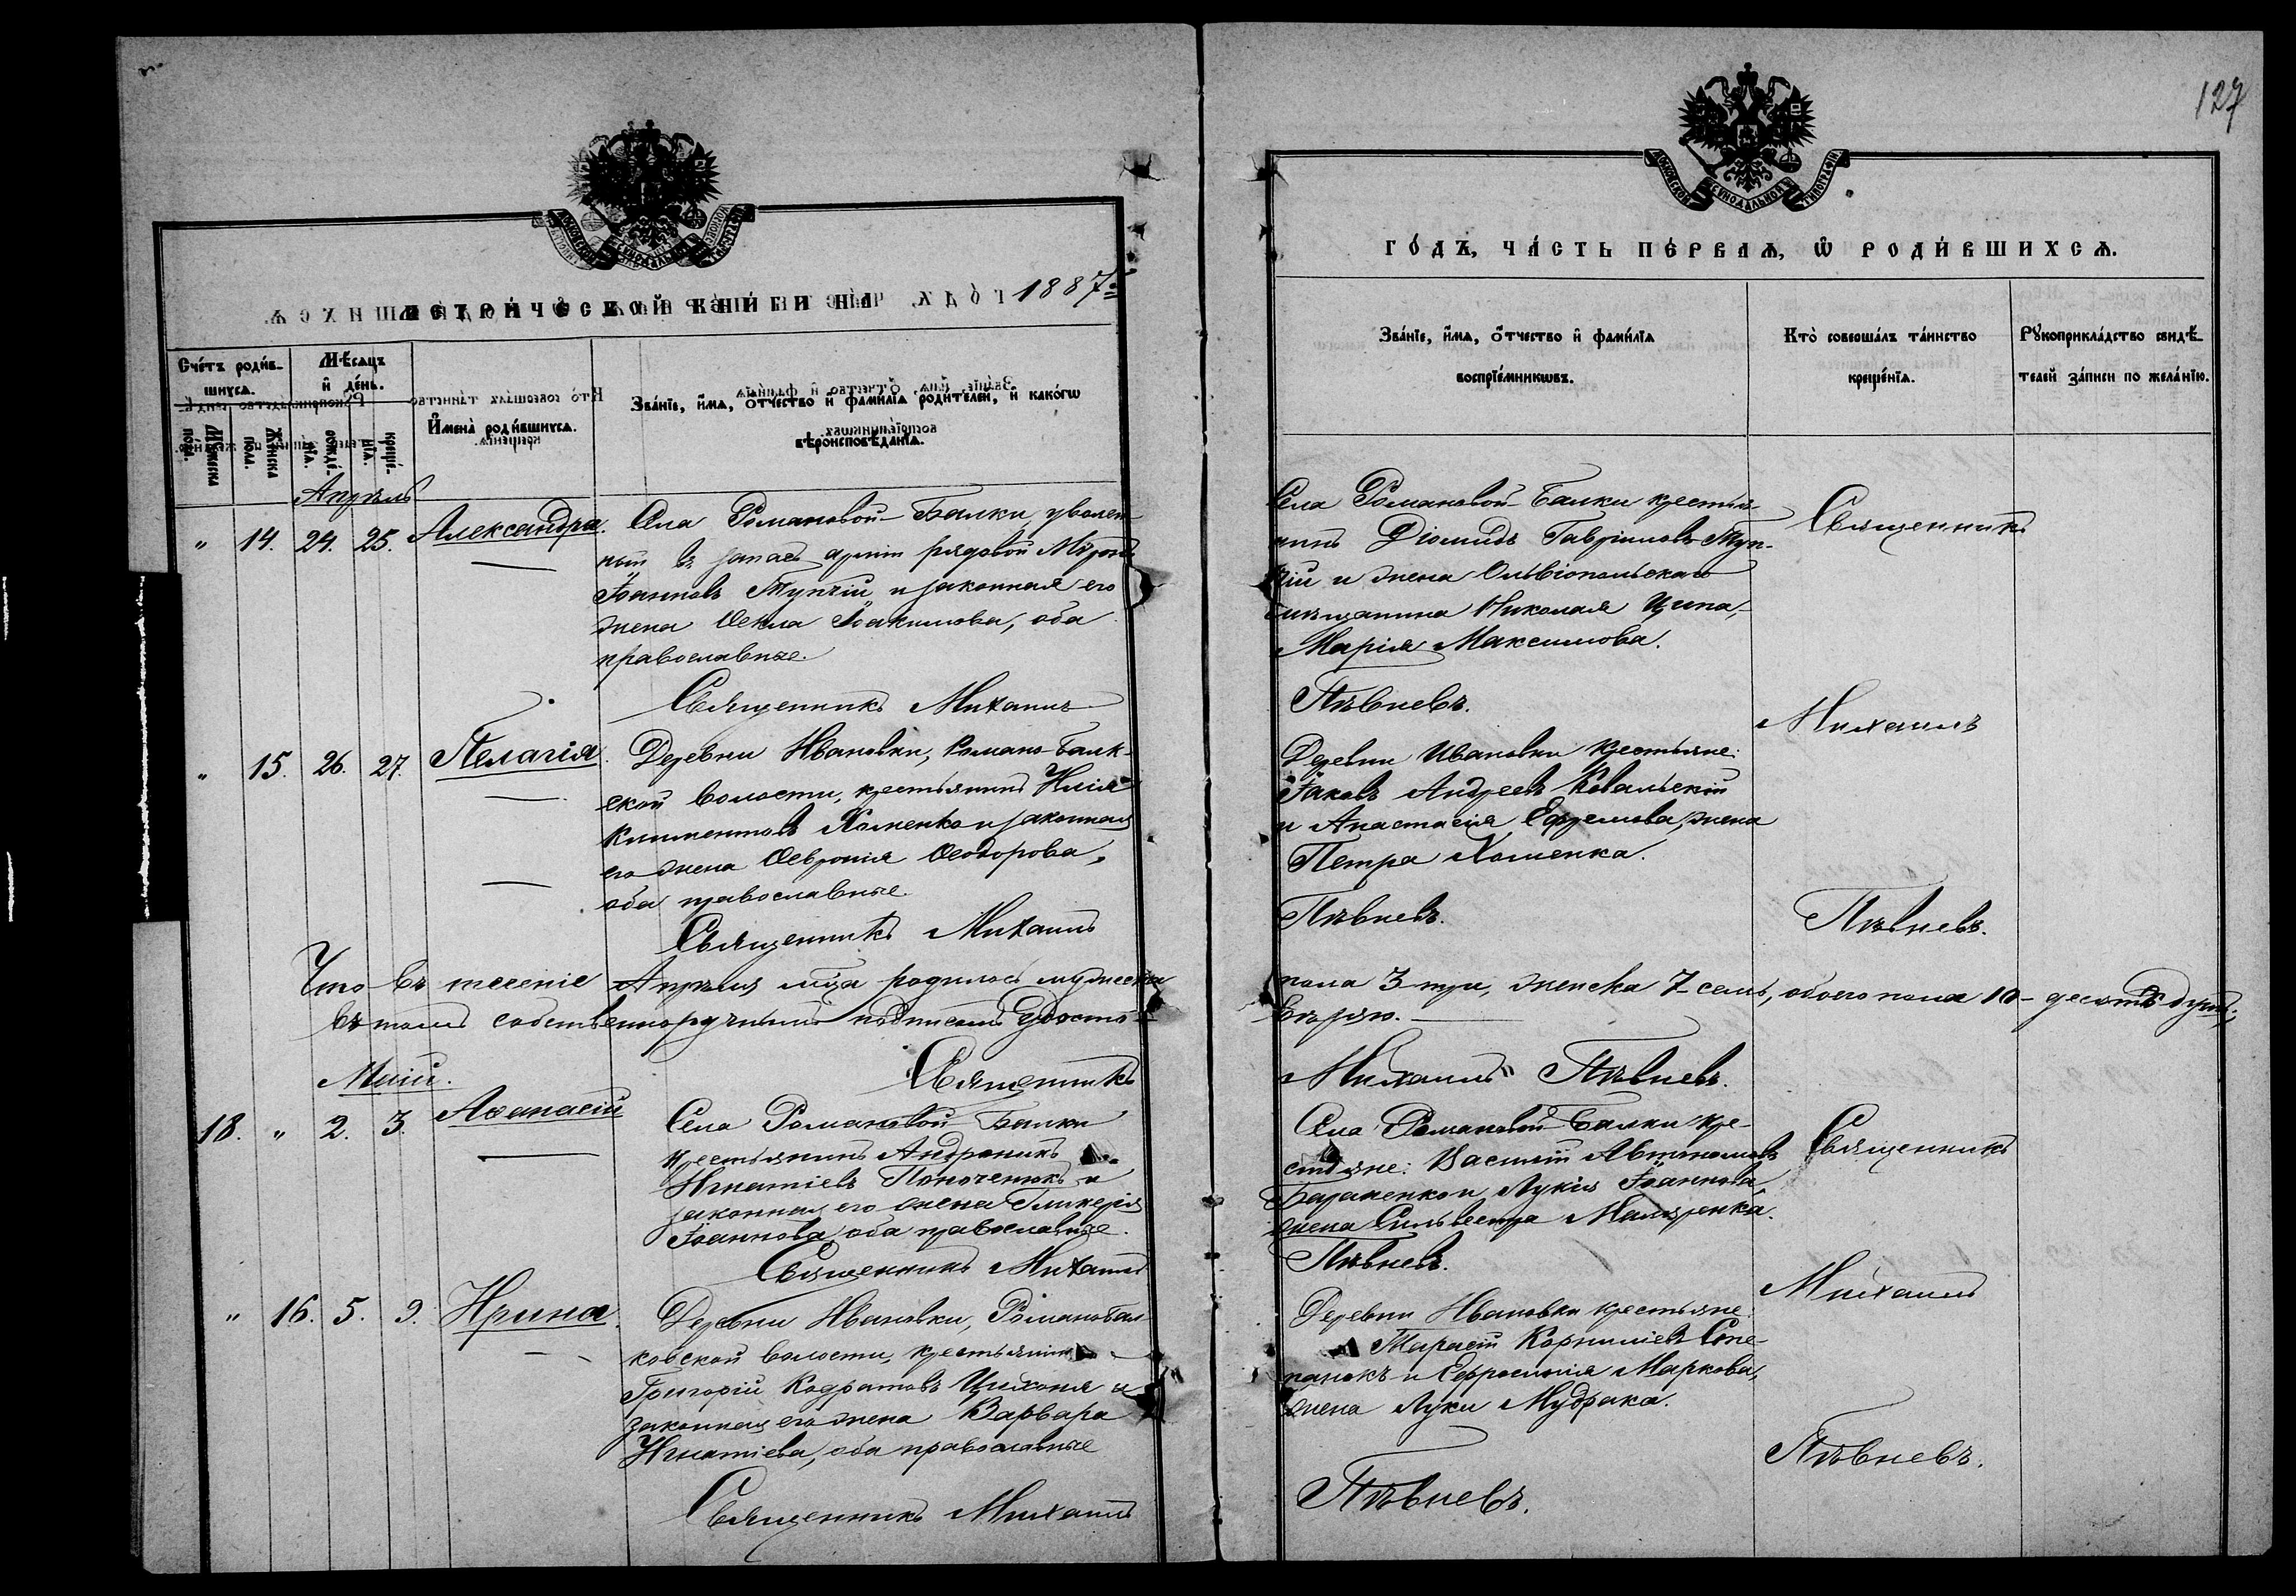 127
МОСКОВСКОЙ СѴНОДАЛЬНОЙ ТИПОГРАФІИ
МЕТРИЧЕСКОЙ КНИГИ НА 1887й
ГОДЪ, ЧАСТЬ ПЕРВАЯ, Ѿ РОДИВШИХСЯ.
Счетъ родившихся.
Мужеска пола.
Женска пола.
Мѣсяцъ и день.
рожденія.
крещенія.
Имена родившихся.
Званіе, имя, отчество и фамилія родителей, и какогѡ вѣроисповѣданія.
Званіе, имя, отчество и фамилія воспріемникѡвъ.
Кто совершалъ таинство крещенія.
Рукоприкладство свидѣтелей записи по желанію.
Апрѣль
" 14. 24. 25. Александра.
Села Романовой-Балки, уволен-
ный въ запасъ арміи рядовой Миронъ
Іоанновъ Тупчій и законная его
жена Ѳекла Іоакимова, оба
православные.
Священникъ Михаилъ
Села Романовой-Балки крестья-
нинъ Діомидъ Гавріиловъ Туп-
чій и жена Ольвіопольскаго
мѣщанина Николая Ципа,
Марія Максимова.
Пѣвневъ.
Священникъ
" 15. 26. 27. Пелагія.
Деревни Ивановки, Романо-Балк-
ской волости, крестьянинъ Илія
Климентовъ Хоменко и законная
его жена Ѳевронія Ѳеодорова,
оба православные.
Священникъ Михаилъ
Деревни Ивановки крестьяне:
Іаковъ Андреевъ Ковальскій
и Анастасія Ефремова, жена
Петра Хоменка.
Пѣвневъ.
Михаилъ
Пѣвневъ.
Что въ теченіе Апрѣля мца родилось мужеска пола 3-три, женска 7-семь, обоего пола 10-десять душъ,
въ томъ собственноручнымъ подписомъ удосто-вѣряю.
Священникъ Михаилъ Пѣвневъ.
Май.
18. " 2. 3. Аѳанасій
Села Романовой-Балки
крестьянинъ Андроникъ
Игнатіевъ Поноченюкъ и
законная его жена Гликерія
Іоаннова, оба православные.
Священникъ Михаилъ
Села Романовой-Балки кре-
стьяне: Василій Автономовъ
Бараненко и Лукія Іоаннова,
жена Сильвестра Маляренка.
Пѣвневъ.
Священникъ
" 16. 5. 9. Ирина.
Деревни Ивановки, Романобал-
ковской волости, крестьянинъ
Григорій Кодратовъ Цихоня и
законная его жена Варвара
Игнатіева, оба православные
Священникъ Михаилъ
Деревни Ивановки крестьяне:
Тарасій Корниліевъ Сте-
панокъ и Евфросинія Маркова,
жена Луки Мудрака.
Пѣвневъ.
Михаилъ
Пѣвневъ.